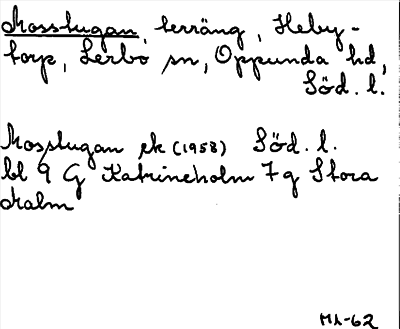 Mosstugan, terräng, Heby-
torp, Lerbo sn, Oppunda hd,
Söd. l.
Mosstugan ek (1958) Söd. l.
bl 9 G Katrineholm 7g Stora
Malm
MA-62